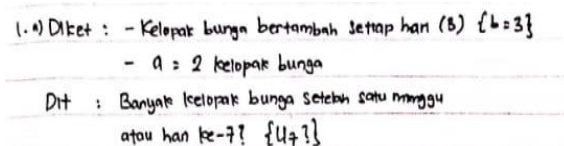 1. a) Diket : - Kelopak bunga bertambah setiap hari (3) {b=3}
- a = 2 kelopak bunga
Dit : Banyak kelopak bunga setelah satu minggu
atau hari ke-7? {U7?}